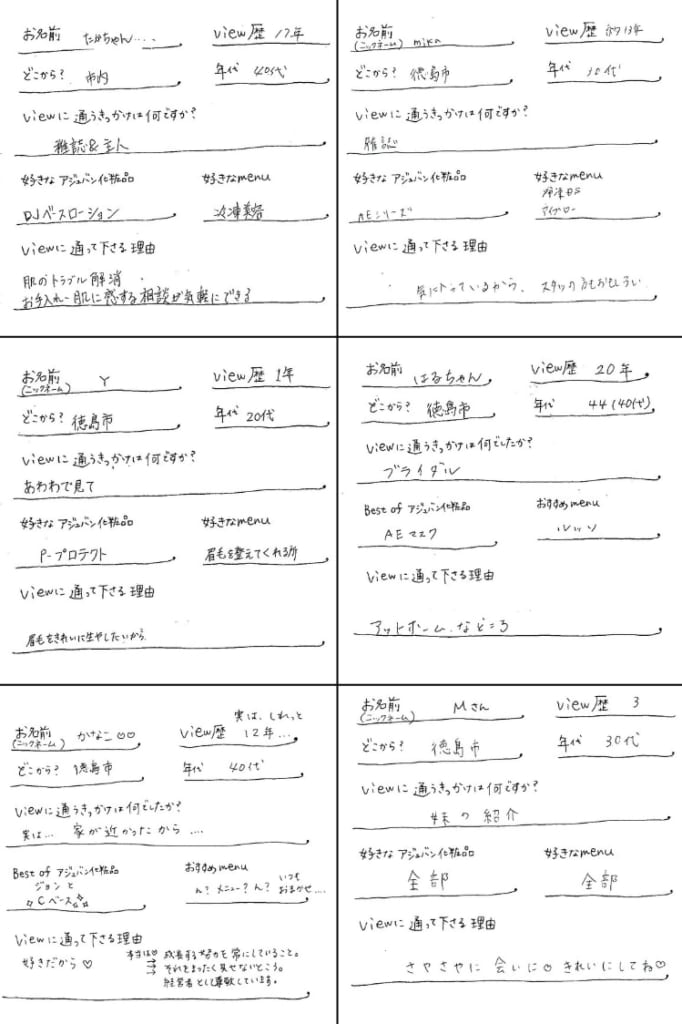 お名前 たかちゃん....
view歴 17年
どこから? 市内
年代 40代
viewに通うきっかけは何ですか?
雑誌&主人
好きなアジュバン化粧品
好きなmenu
DJベースローション
冷凍美容
viewに通って下さる理由
肌のトラブル解消
お手入れ・肌に感する相談が気軽にできる
お名前
(ニックネーム) mika
view歴 約13年
どこから? 徳島市
年代 30代
viewに通うきっかけは何ですか?
雑誌
好きなアジュバン化粧品
好きなmenu
AEシリーズ
アイブロー
viewに通って下さる理由
気に入っているから、スタッフ
お名前
(ニックネーム) Y
view歴 1年
どこから? 徳島市
年代 20代
viewに通うきっかけは何ですか?
あわわで見て
好きなアジュバン化粧品
好きなmenu
P-プロテクト
眉毛を整えてくれる所
viewに通って下さる理由
眉毛をきれいに生やしたいから
お名前 はるちゃん
view歴 20年
どこから? 徳島市
年代 44(40代)
viewに通うきっかけは何でしたか?
ブライダル
Best of アジュバン化粧品
おすすめmenu
AEマスク
ルッソ
viewに通って下さる理由
アットホームなところ
実は、しれっと
お名前
(ニックネーム) かなこ♡♡
view歴 12年...
どこから? 徳島市
年代 40代
viewに通うきっかけは何でしたか?
実は... 家が近かったから....
Best of アジュバン化粧品
おすすめmenu
ジョンと
Cベース
ん?メニュー?ん? いつもおまかせ....
viewに通って下さる理由
好きだから♡
本当は♡ 成長する努力を常にしていること。
それをまったく見せないところ。
経営者として尊敬しています。
お名前
(ニックネーム) Mさん
view歴 3
どこから? 徳島市
年代 30代
viewに通うきっかけは何ですか?
妹の紹介
好きなアジュバン化粧品
好きなmenu
全部
全部
viewに通って下さる理由
さやさやに会いに♡きれいにしてね♡